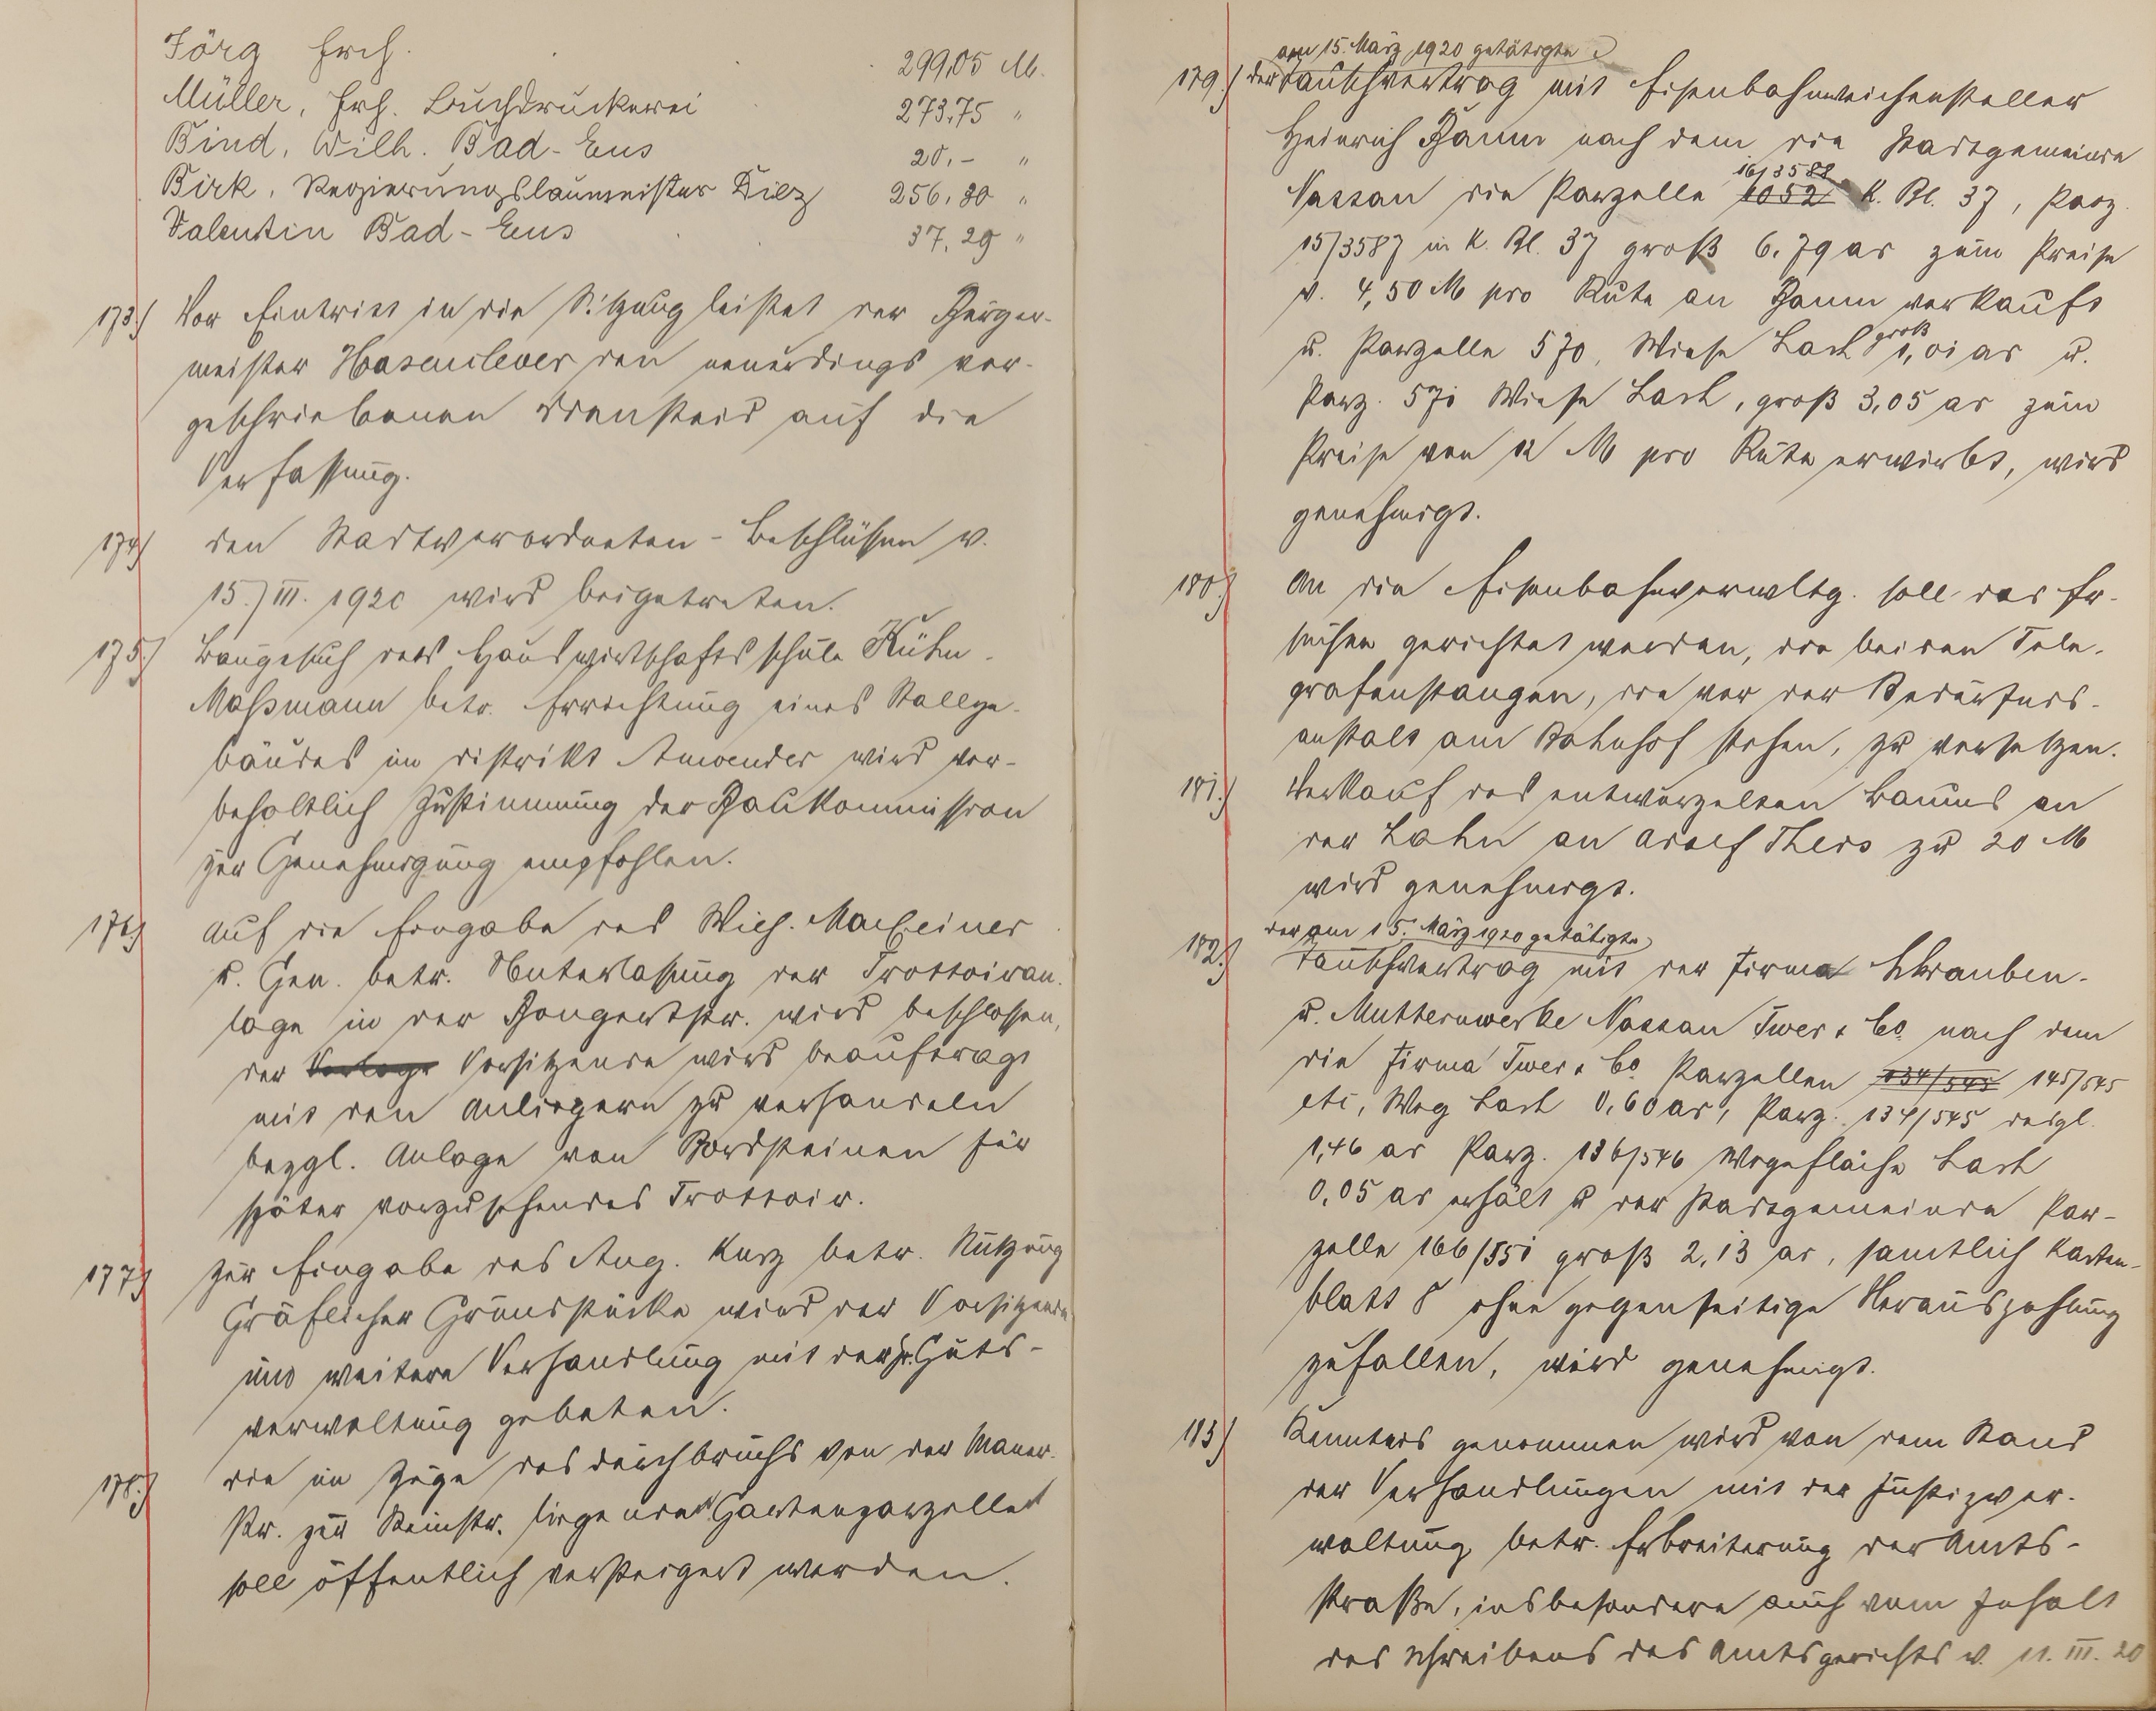 Jörg Frch. 299,05 M.
Müller, Frh. Buchdruckerei 273,75 "
Bind, Wilh. Bad-Ems 20,- "
Birk, Regierungsbaumeister Diez 256,80 "
Valentin Bad-Ems 37,29 "
173.) Vor Eintritt in die Sitzung leistet der Bürger-
meister Hasenclever den neuerdings vor-
geschriebenen Diensteid auf die
Verfassung.
174) den Stadtverordneten-Beschlüssen v.
15./III. 1920 wird beigetreten.
175.) Baugesuch der Hauswirtschaftsschule Kühn-
Massmann betr. Errichtung eines Stallge-
bäudes im Distrikt Amoender wird vor-
behaltlich Zustimmung der Baukommission
zur Genehmigung empfohlen.
176.) Auf die Eingabe des Wilh. Macheiner
u. Gen. betr. Unterlassung der Trottoiran-
lage in der Bongertstr. wird beschlossen,
der Vorlage Vorsitzende wird beauftragt
mit den Anliegern zu verhandeln
bezgl. Anlage von Bordsteinen für
später vorzusehendes Trottoir.
177.) Zur Eingabe des Aug. Kurz betr. Nutzung
Gräflicher Grundstücke wird der Vorsitzende
um weitere Verhandlung mit der gr. Guts-
verwaltung gebeten.
178.) die im Zuge des Durchbruchs von der Mauer-
str. zur Steinstr. liegende Gartenparzelle
soll öffentlich versteigert werden.
am 15. März 1920 getätigte
179.) der Tauschvertrag mit Eisenbahnweichensteller
Heinrich Hamm nach dem die Stadtgemeinde
16/3588
Nassau die Parzelle 6052 K. Bl. 37, Parz.
15/3587 in K. Bl. 37 groß 6,79 ar zum Preise
v. 4,50 M pro Rute an Hamm verkauft
groß
u. Parzelle 570, Wiese Lach 1,01 ar u.
Parz. 571 Wiese Lach, groß 3,05 ar zum
Preise von 12 M pro Rute erwirbt, wird
genehmigt.
180.) An die Eisenbahnverwltg. soll das Er-
suchen gerichtet werden, die beiden Tele-
grafenstangen, die vor der Bedürfnis-
anstalt am Bahnhof stehen, zu versetzen.
181.) Verkauf des entwurzelten Baumes an
der Lahn an Adolf Theis zu 20 M
wird genehmigt.
der am 15. März 1920 getätigte
182.) Tauschvertrag mit der Firma Schrauben-
u. Mutternwerke Nassau Twer & Co nach dem
die Firma Twer & Co Parzellen 134/545 145/545
etc, Weg Lach 0,60 ar, Parz. 134/545 desgl.
1,46 ar Parz. 136/546 Wegefläche Lach
0,05 ar erhält u der Stadtgemeinde Par-
zelle 166/551 groß 2,13 ar, samtlich Karten-
blatt 8 ohne gegenseitige Herauszahlung
zufallen, wird genehmigt.
183) Kenntnis genommen wird von dem Stand
der Verhandlungen mit der Justizver-
waltung betr. Erbreiterung der Amts-
straße, insbesondere auch vom Inhalt
des Schreibens des Amtsgerichts v. 11. III. 20